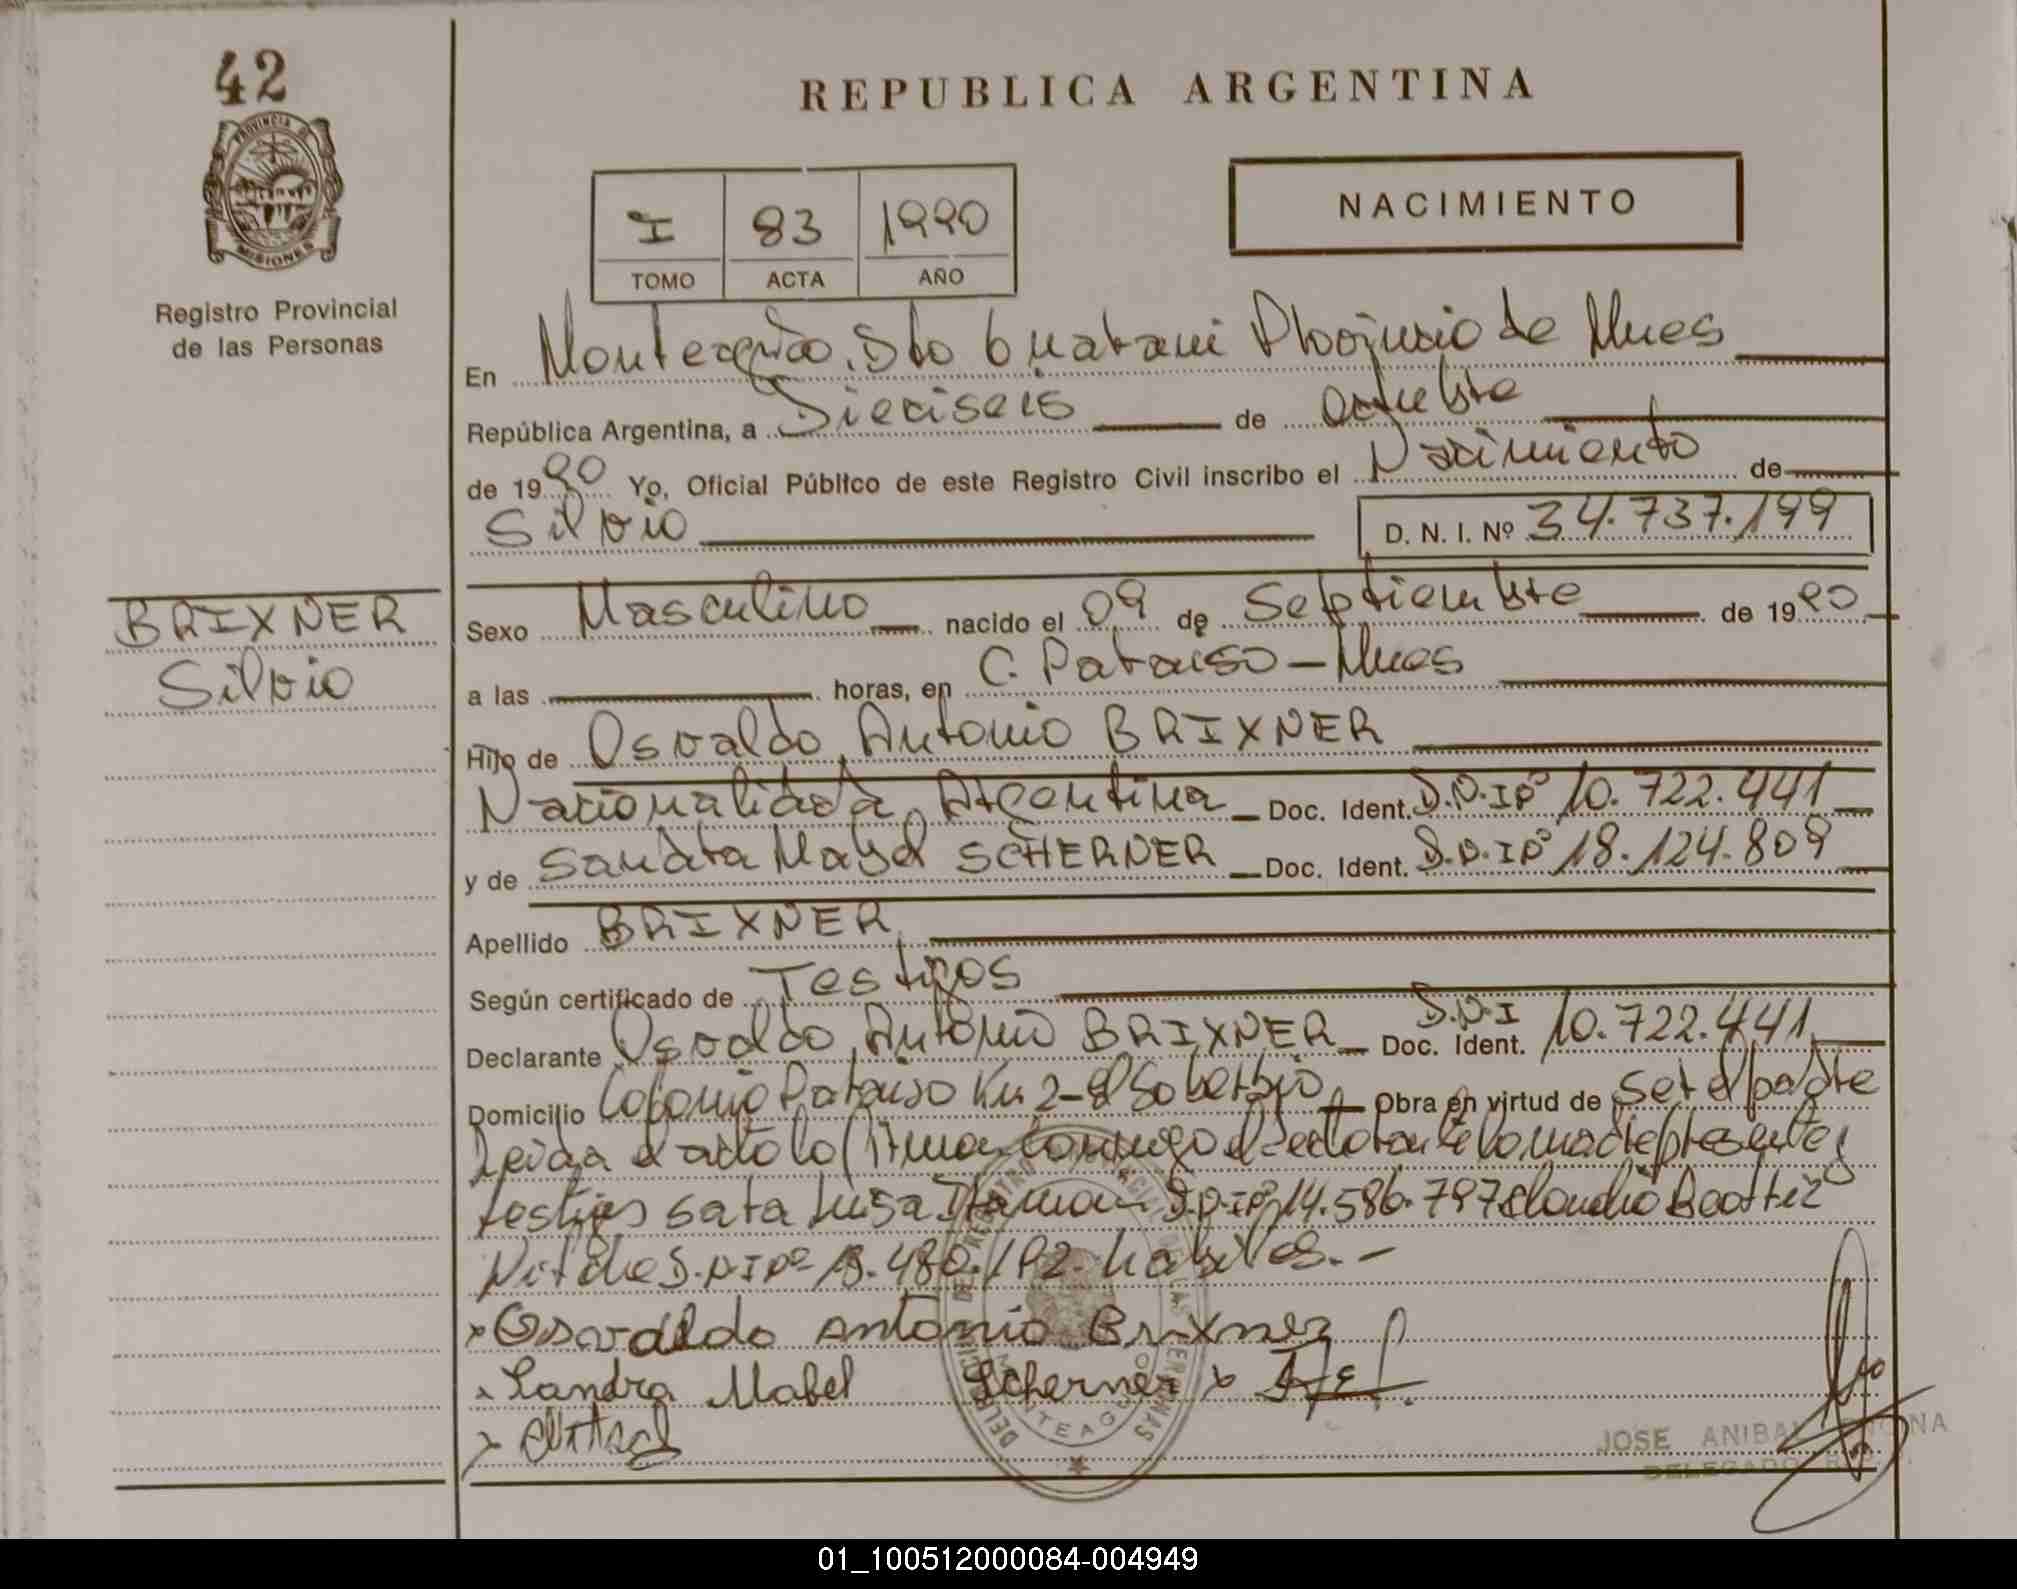 42
PROVINCIA DE
MISIONES
Registro Provincial
de las Personas
REPUBLICA ARGENTINA
I 83 1990
TOMO ACTA AÑO
NACIMIENTO
En Monteagudo, Dto Guarani Provincia de Mnes
República Argentina, a Dieciseis de octubre
de 1990 Yo, Oficial Público de este Registro Civil inscribo el Nacimiento de
Silvio
D. N. I. Nº 34.737.199
BRIXNER
Silvio
Sexo Masculino nacido el 09 de Septiembre de 1990
a las horas, en C. Paraiso - Mnes
Hijo de Osvaldo Antonio BRIXNER
Nacionalidad Argentina Doc. Ident. D.N.I Nº 10.722.441
y de Sandra Mabel SCHERNER Doc. Ident. D.N.I Nº 18.124.809
Apellido BRIXNER
Según certificado de Testigos
Declarante Osvaldo Antonio BRIXNER Doc. Ident. D.N.I 10.722.441
Domicilio Colonia Paraiso Km 2 - El Soberbio Obra en virtud de ser el padre
Leida el acta la firma conmigo el declarante la madre presente y
testigos Sara Luisa D.N.I Nº 14.586.797 Claudia Beatriz
D.N.I Nº habiles.-
x Osvaldo Antonio Brixner
x Sandra Mabel Scherner x
x
MONTEAGUDO
JOSE ANIBAL
DELEGADO
01_100512000084-004949